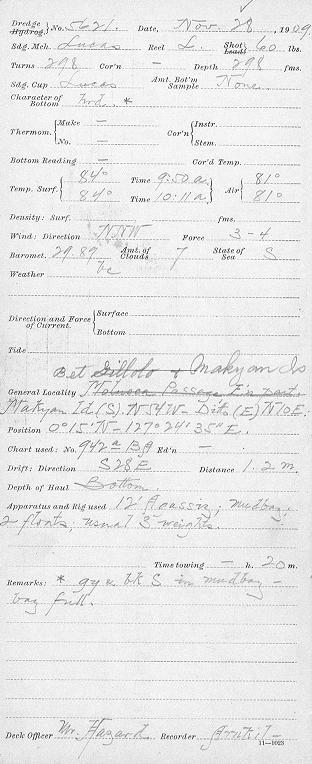 Dredge No. 5621. Date, Nov. 28, 1909.
Hydrog.
Sdg. Mch. Lucas Reel L. Shot 60 lbs.
Lead
Turns 298 Cor'n — Depth 298 fms.
Sdg. Cup Lucas Amt. Bot'm Sample None.
Character of Bottom *
Thermom. Make — Cor'n Instr.
No. — Stem.
Bottom Reading — Cor'd Temp.
Temp. Surf. 84° Time 9:50 a. Air 81°
84° Time 10:11 a. 81°
Density: Surf. fms.
Wind: Direction NNW Force 3-4
Baromet. 29.89 Amt. of Clouds 7 State of Sea S
Weather bc
Direction and Force of Current. Surface
Bottom
Tide
Bet Gillolo & Makyan Is
General Locality Molucca Passage E'n part.
Makyan Id. (S). N54W— Dito (E) N70E.
Position 0°15'N—127°24'35"E.
Chart used: No. 942a BA Ed'n —
Drift: Direction S28E Distance 1.2 m.
Depth of Haul Bottom.
Apparatus and Rig used 12' Agassiz; mudbag;
2 floats; usual 3 weights.
Time towing — h. 20 m.
Remarks: * gy & bk S in mudbag—
bag full.
Deck Officer Mr. Hazard Recorder
11—1023